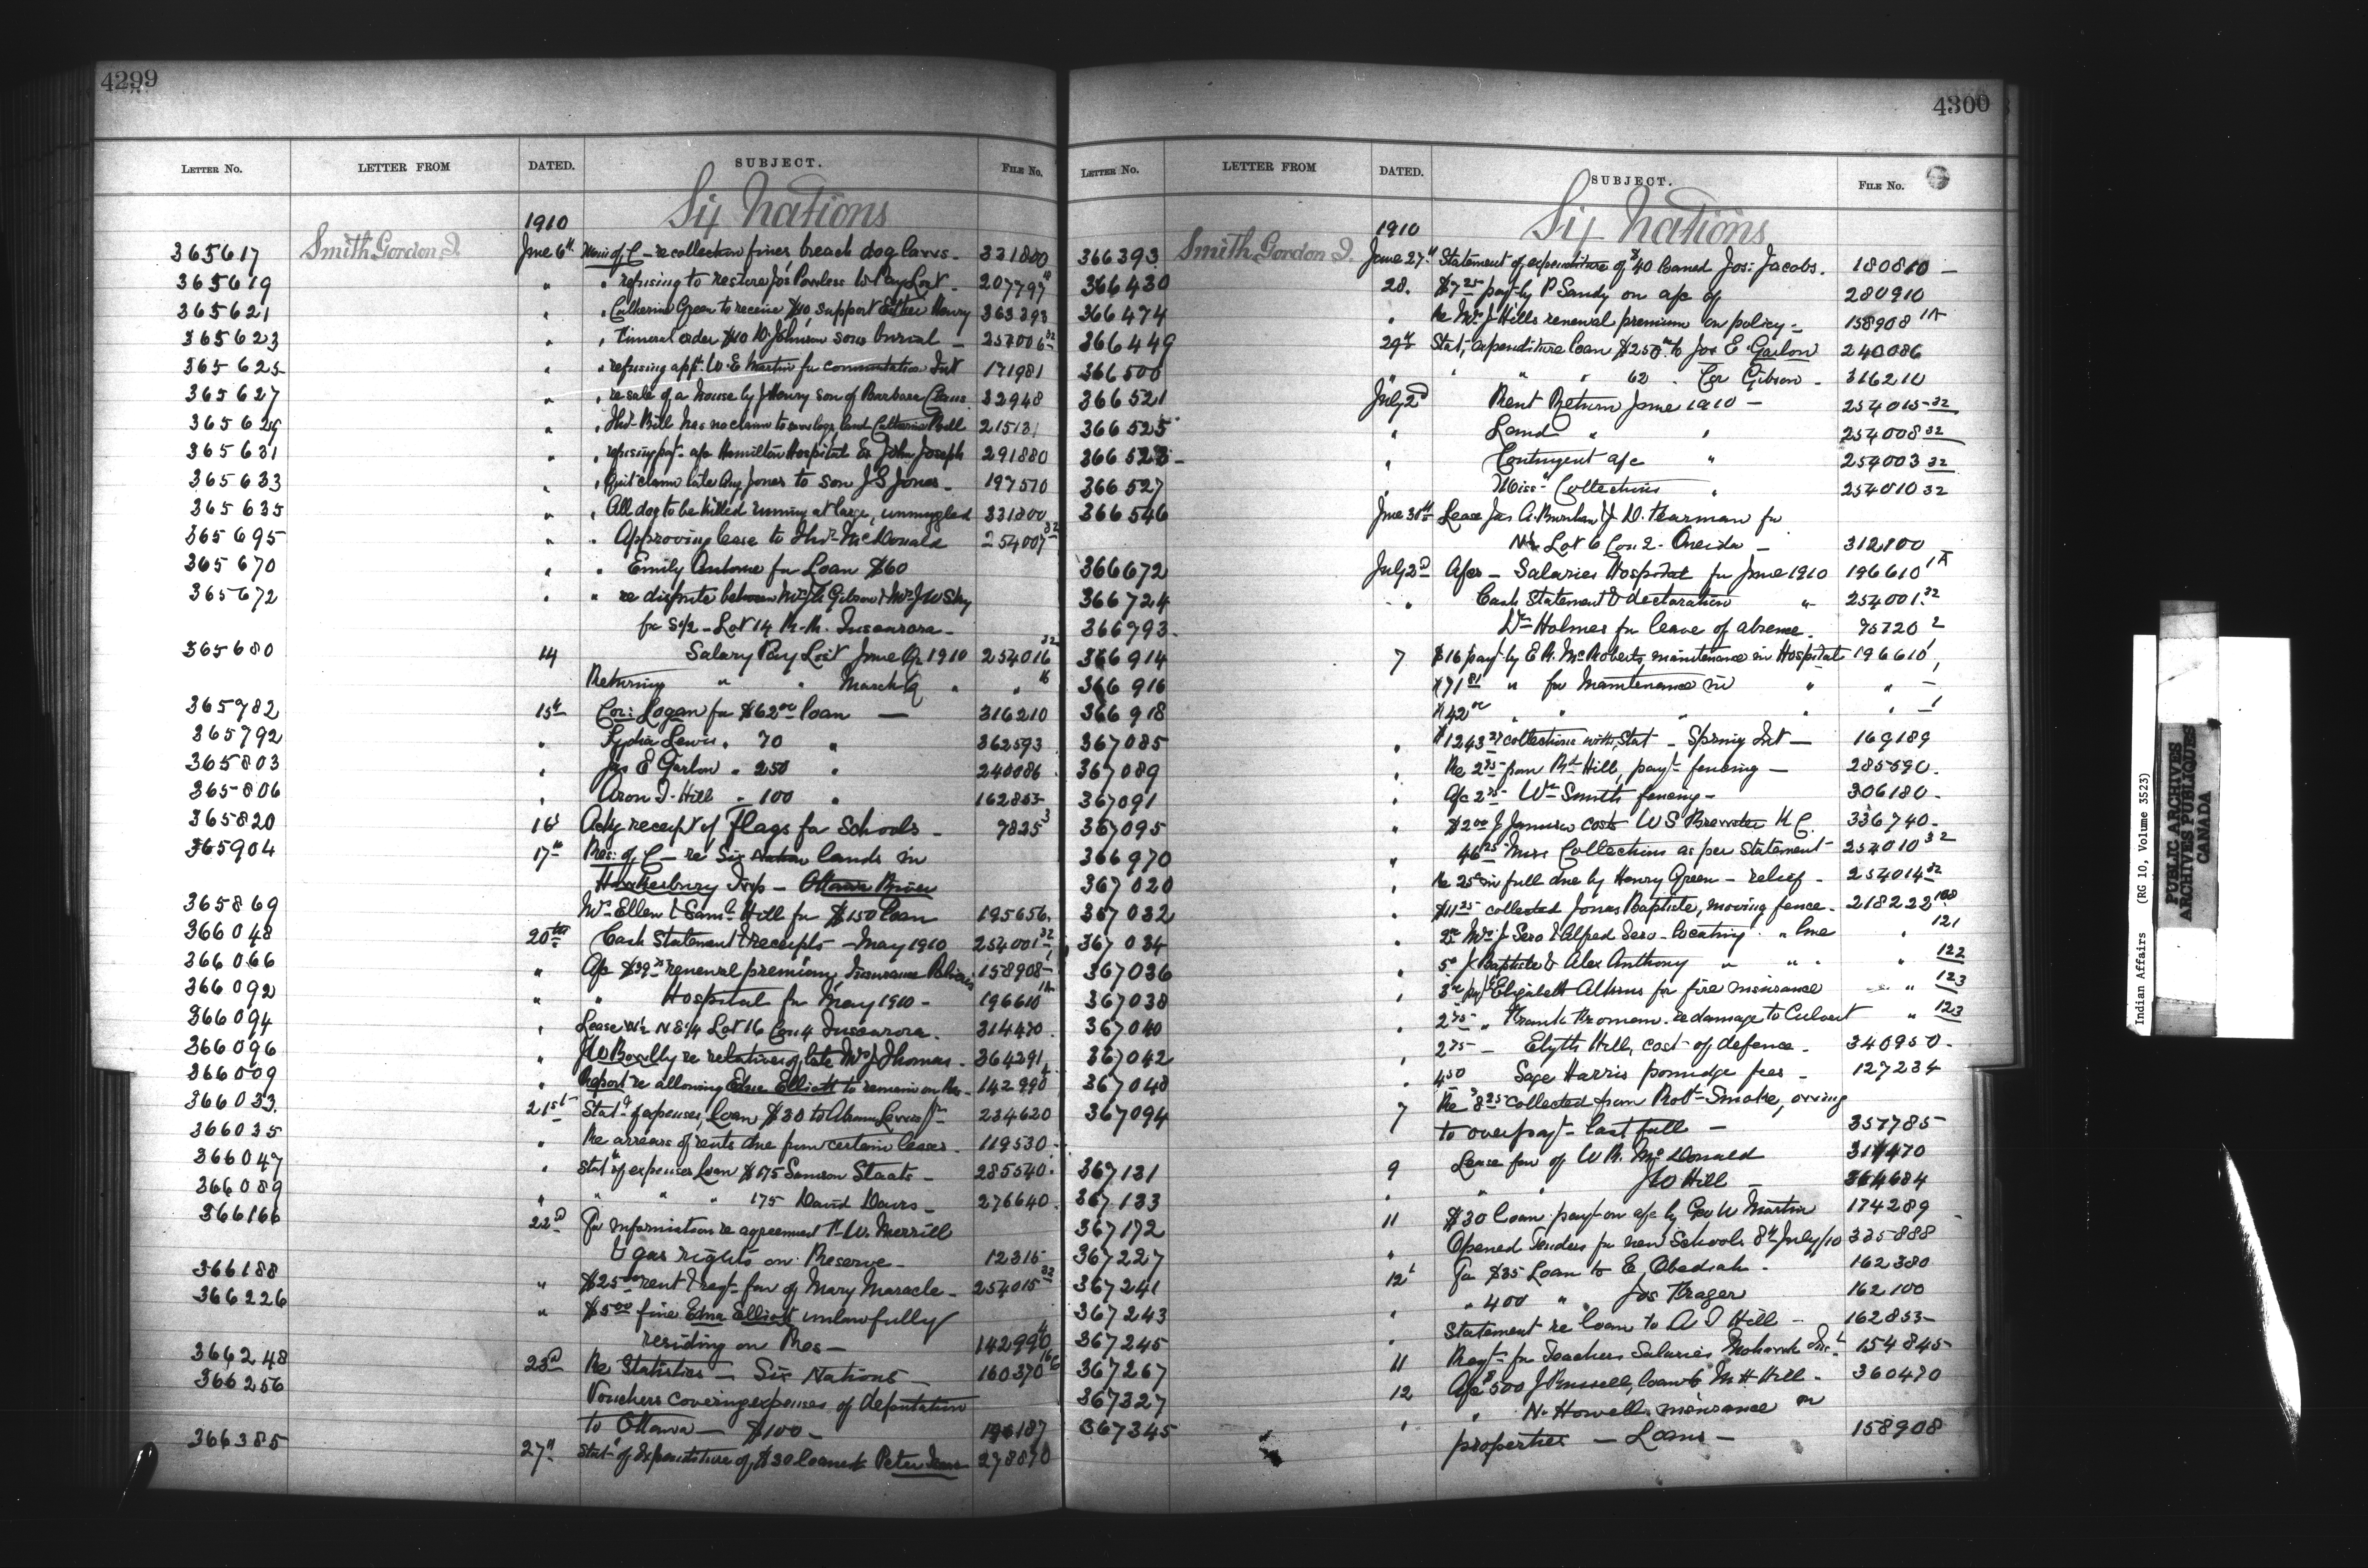 4299
LETTER No. LETTER FROM DATED. SUBJECT. FILE No.
Six Nations
1910
365617 Smith Gordon J. June 6th Min of C - re collection fines breach dog laws - 331800
365619 " " refusing to restore Jos Powless to Pay List - 207797
365621 " " Catherine Green to receive $10 support Esther Henry 363393
365623 " " Funeral order $10 D. Johnson sons burial - 254006 32
365625 " " refusing appn. W. E. Martin for commutation Int 171981
365627 " " re sale of a house by J Henry son of Barbara 32948
365629 " " Bill has no claim to land Catherine Bell 21513
365631 " " refusing payt. a/c Hamilton Hospital Ex John Joseph 291880
365633 " " Quit claim late Aug Jones to son J S Jones - 197570
365635 " " All dog to be killed running at large, unmuzzled 331800
365695 " " Approving lease to McDonald 254007 32
365670 " " Emily for Loan $60
365672 " " re dispute between Mrs Gibson & Mrs J W Sky
for S1/2 - Lot 14 R.R. Tuscarora -
365680 14 Salary Pay List June Qr 1910 254016 32
Returning " " March Q " " 16
365782 15th Cor: Logan for $62.00 loan - 316210
365792 " Lydia Lewis " 70 " 362593
365803 " Jas E Garlow " 250 " 240086
365806 " Aron J. Hill " 100 " 162853
365820 16 Ackg receipt of Flags for Schools - 7825 3
365904 17th Res: of C - re Six Nation lands in
Hawkesbury Twp - Ottawa River
365869 Mrs Ellen & Saml Hill for $150 loan 195656
366048 20th Cash Statement & receipts - May 1910 254001 32
366066 " A/c $39 renewal premium, Insurance Policies 158908
366092 " " Hospital for May 1910 - 196610 1A
366094 " Lease N S1/4 Lot 16 Con 4 Tuscarora. 314470
366096 " re relatives of late Mrs J Thomas. 364391
366009 " Report re allowing Edna Elliott to remain on Res - 142990
366033 21st Statt of expenses, Loan $30 to Abram Lewis 234620
366035 " Re arrears of rents due from certain leases 119530
366047 " Statt of expenses Loan $175 Samson Staats - 285540
366089 " " " " 175 David Davis - 276640
366166 22d For information re agreement W. Merrill
& gas rights on Reserve - 12315
366188 " $25.00 rent & reqt - for of Mary Maracle - 254015 32
366226 " $5.00 fine Edna Elliott unlawfully
residing on Res - 142990
366248 23d Re Statistics - Six Nations - 160370
366256 Vouchers covering expenses of deputation
to Ottawa - $100 - 187
366385 27th Statt of Expenditure of $30 loaned Peter 278870
4300
LETTER No. LETTER FROM DATED. SUBJECT. FILE No.
Six Nations
1910
366393 Smith Gordon J. June 27th Statement of expenditure of $40 loaned Jos: Jacobs. 180810 -
366430 28. $7.25 payt by P Sandy on a/c of 280910
366474 " Re Mrs J Hills renewal premium on policy - 158908 1A
366449 29th Stat, expenditure loan $250.00 to Jas E Garlow 240086
366500 " " " 62 " Cor Gibson - 316210
366521 July 2d Rent Return June 1910 - 254015 32
366525 " Land " " 254008 32
366523 - " Contingent a/c " 254003 32
366527 " Miss - Collections " 254010 32
366546 June 30th Lease Jas A. Burnham & J. D. for
N1/2 Lot 6 Con 2 - Oneida - 312100
366672 July 2d A/cs - Salaries Hospital for June 1910 196610 1A
366724 " Cash Statement & declaration " 254001 32
366793 Dr Holmes for leave of absence. 75720 2
366914 7 $16 payt by E R. McRoberts, maintenance in Hospital 196610 1
366916 $71.81 " for Maintenance in " " -
366918 $42.00 " " " " " 1
367085 " $1243 collections with Stat - Spring Int - 169189
367089 " Re 2.75 from Rd Hill, payt - fencing - 285590
367091 " A/c 2.75 - Wm Smith fencing - 306180
367095 " $2.00 J Jamieson costs W S Brewster K C. 336740
366970 " 46.25 Miss Collections as per statement 254010 32
367020 " Re 25 in full due by Henry Green - relief - 254014 32
367032 " $11.25 collected Jonas Baptiste, moving fence - 218222 108
367034 " Mrs J Sero & Alfred Sero - locating " line " 121
367036 " J Baptiste & Alex Anthony " " " " 122
367038 " Elizabeth for fire insurance " 123
367040 " 2.75 " Frank Froman - re damage to Culvert " 123
367042 " 2.75 - Elijah Hill, cost of defence - 340950
367048 " 4.50 Sage Harris poundage fees - 127234
367094 7 Re $8.25 collected from Robt Smoke, owing
to overpayt - last fall - 357785
367131 9 Lease for of W R. McDonald 314470
367133 " " " J W Hill - 364684
367172 11 $30 loan payt - on a/c by Geo W Martin 174289
367227 " Opened Tenders for new Schools 8th July/10 335888
367241 12th For $35 Loan to E. Obediah - 162380
367243 " 400 " " Jos Krager 162100
367245 " Statement re loan to A J Hill - 162853
367267 11 Reqt - for Teachers Salaries Mohawk Inst. 154845
367327 12 A/c $500 J Russell, loan to M H Hill - 360470
367345 " " N. Howell insurance on
properties - Loans - 158908
Indian Affairs (RG 10, Volume 3523)
PUBLIC ARCHIVES
ARCHIVES PUBLIQUES
CANADA